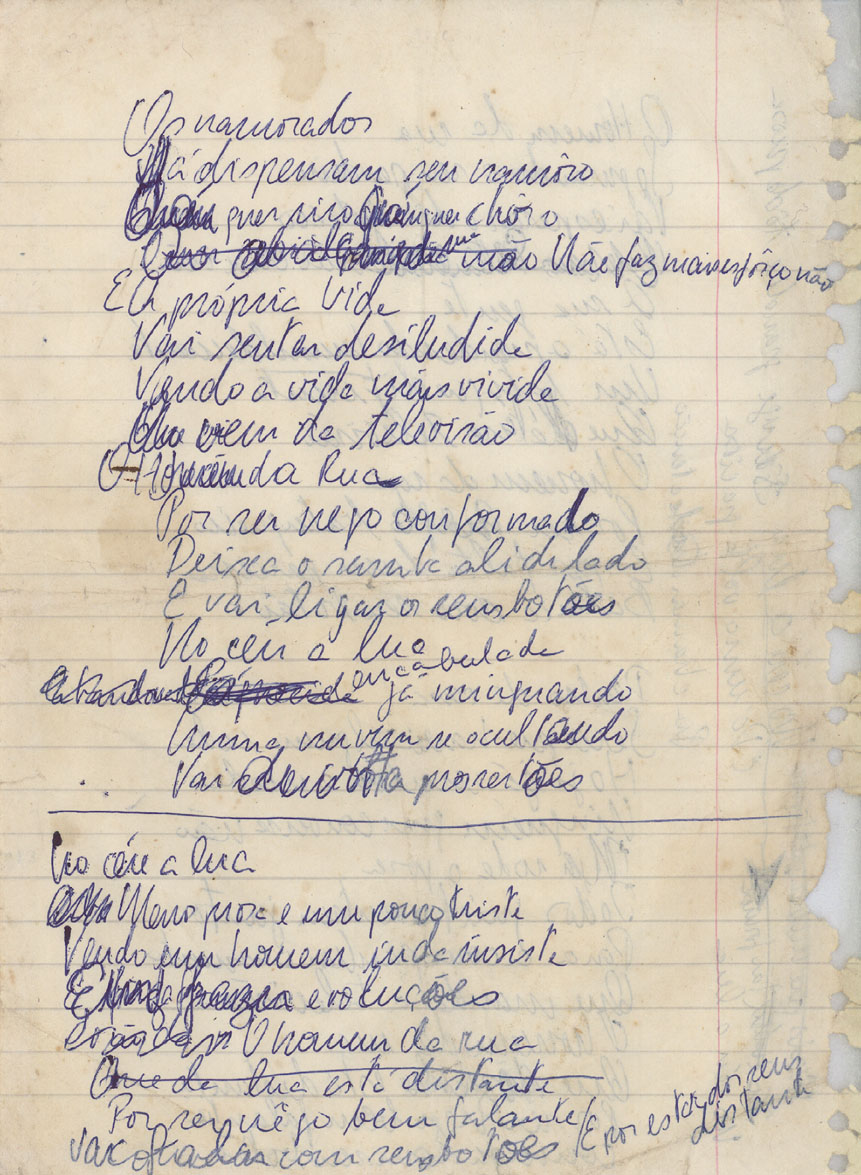 Os namorados
Já dispensam seu namôro
Quem quer riso Quem quer chôro
não Não faz mais esfôrço não
E a própria vida
Vai sentar desiludida
Vendo a vida mais vivida
Que vem da televisão
O Homem da Rua
Por ser nego conformado
Deixa a samba ali do lado
E vai ligar os seus botões
No céu a lua
encabulada
já minguando
Numa nuvem se ocultando
Vai pros sertões
No céu a lua
Meno prosa e um pouco triste
Vendo um homem inda insiste
evoluções
O homem da rua
Que da lua está distante
Por ser nêgo bem falante / E por estar dos seus distante
com seus botões